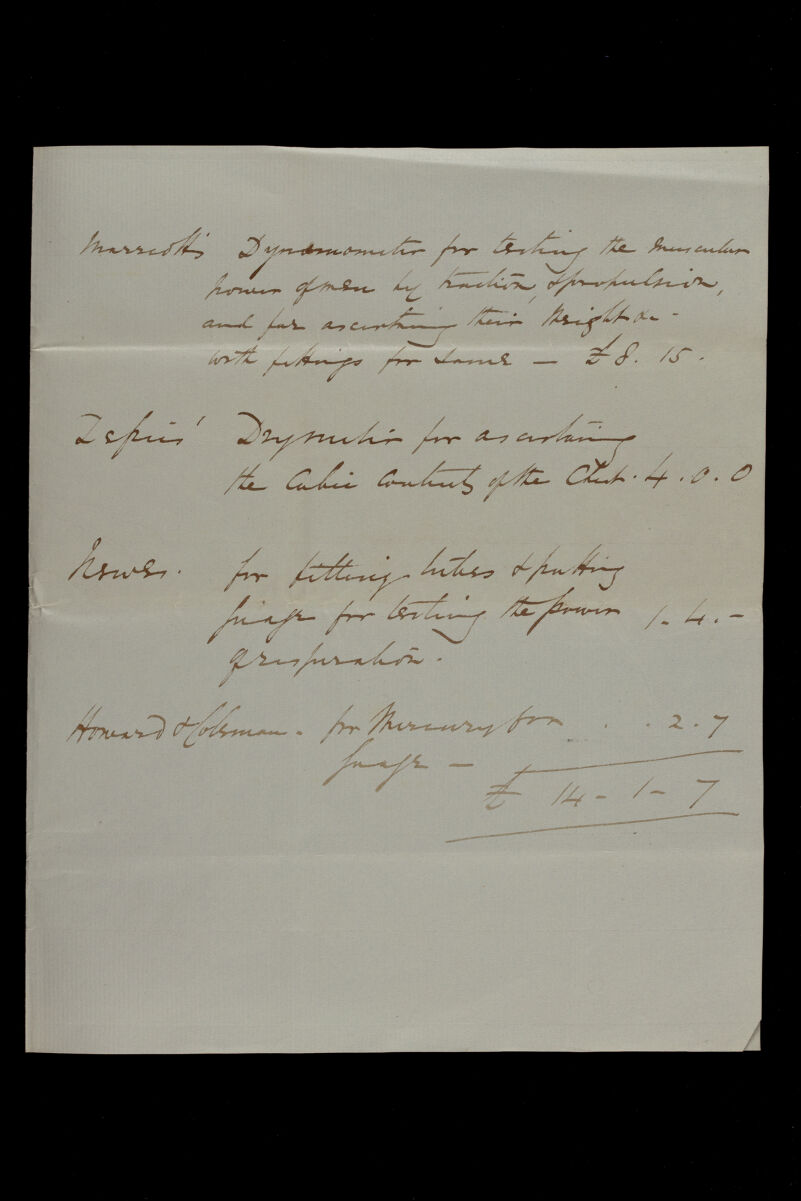 Marriott's Dynamometer for testing the muscular
power of men by traction, & propulsion,
and for ascertaining their Weight &c -
with fittings for same — £8. 15.
Drymeter for ascertaining
the Cubic Contents of the Chest. 4. 0. 0
Newes. for fitting tubes & putting
guage for testing the power 1. 4. -
of respiration.
Howard & Coleman. for Mercury for . . 2. 7
guage —
£ 14 - 1 - 7